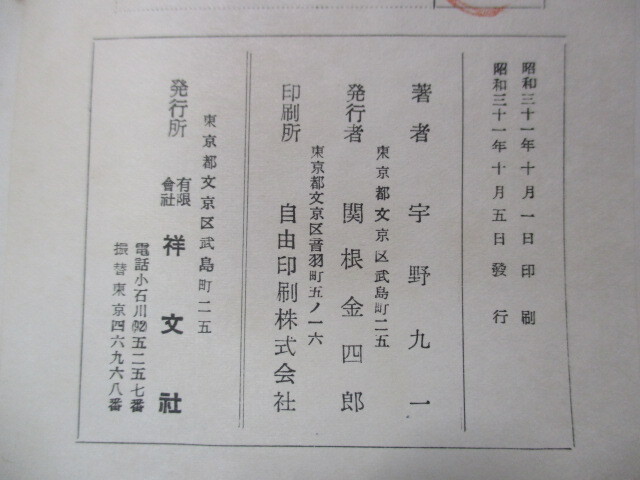 昭和三十一年十月一日印刷
昭和三十一年十月五日發行
著者 宇野九一
東京都文京区武島町二五
発行者 関根金四郎
東京都文京区音羽町五ノ一六
印刷所 自由印刷株式会社
東京都文京区武島町二五
発行所 有限會社 祥文社
電話小石川(92)五二五七番
振替東京四六九六八番